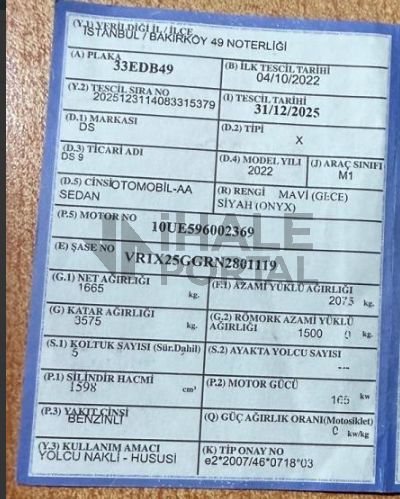 (Y.1) VERİLDİĞİ İL / İLÇE
İSTANBUL / BAKIRKÖY 49 NOTERLİĞİ
(A) PLAKA
33EDB49
(B) İLK TESCİL TARİHİ
04/10/2022
(Y.2) TESCİL SIRA NO
2025123114083315379
(I) TESCİL TARİHİ
31/12/2025
(D.1) MARKASI
DS
(D.2) TİPİ
X
(D.3) TİCARİ ADI
DS 9
(D.4) MODEL YILI
2022
(J) ARAÇ SINIFI
M1
(D.5) CİNSİ OTOMOBİL-AA
SEDAN
(R) RENGİ MAVİ (GECE)
SİYAH (ONYX)
(P.5) MOTOR NO
10UE596002369
(E) ŞASE NO
VR1X25GGRN2801119
İHALE
PORTAL
(G.1) NET AĞIRLIĞI
1665 kg.
(F.1) AZAMİ YÜKLÜ AĞIRLIĞI
2075 kg.
(G) KATAR AĞIRLIĞI
3575 kg.
(G.2) RÖMORK AZAMİ YÜKLÜ
AĞIRLIĞI 1500 0 kg.
(S.1) KOLTUK SAYISI (Sür.Dahil)
5
(S.2) AYAKTA YOLCU SAYISI
---
(P.1) SİLİNDİR HACMİ
1598 cm³
(P.2) MOTOR GÜCÜ
165 kw
(P.3) YAKIT CİNSİ
BENZİNLİ
(Q) GÜÇ AĞIRLIK ORANI(Motosiklet)
0 kw/kg
(Y.3) KULLANIM AMACI
YOLCU NAKLİ - HUSUSİ
(K) TİP ONAY NO
e2*2007/46*0718*03